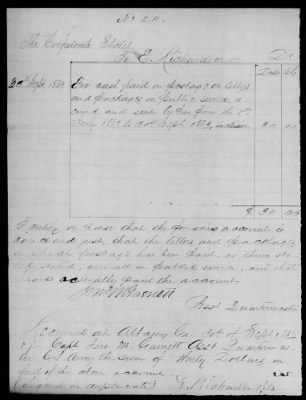 No 20.
The Confederate States
To E. Richardson Dr
Dolls Cts
30th Sept. 1863 For cash paid in postage on letters
and packages on public service, re
ceived and sent by him from the
July 1863 to 30th Sept. 1863, inclusive 30 00
$ 30 00
I certify on honor that the foregoing account is
correct and just, that the letters and packages
on which postage has been paid, as above sta
ted, were on public service, and that
I have actually paid the account
Jno M Garnett
Asst Quartermaster
Received at Albany Ga. 30th of Sept 1863
of Capt Jno. M Garnett Asst Quartermas
ter C.S. Army the sum of Thirty Dollars in
full of the above account
(Signed in duplicate) E. Richardson